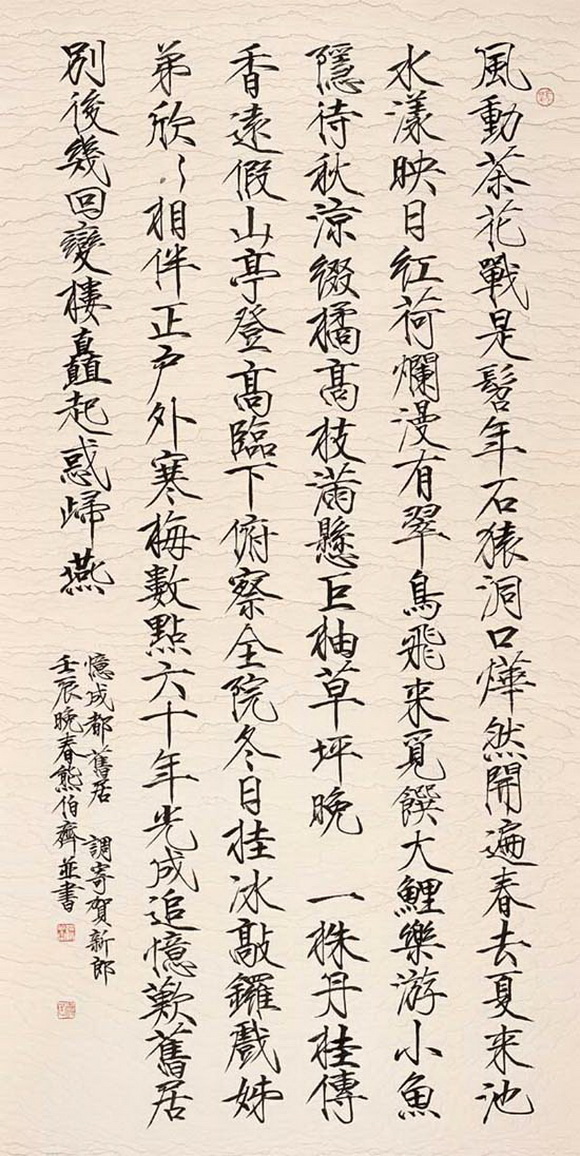 風動茶花戰是髫年石猿洞口燁然開遍春去夏來池
水漾映日紅荷爛漫有翠鳥飛來覓饌大鯉樂游小魚
隱待秋涼綴橘高枝滿懸巨柚草坪晚 一株丹桂傳
香遠假山亭登高臨下俯察全院冬日挂冰敲鑼戲姊
弟欣〻相伴正戶外寒梅數點六十年光成追憶歎舊居
別後幾回變樓矗起惑歸燕
憶成都舊居 調寄賀新郎
壬辰晚春熊伯齊並書